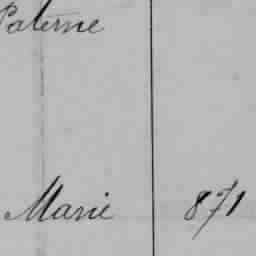 Paterne
Marie 871